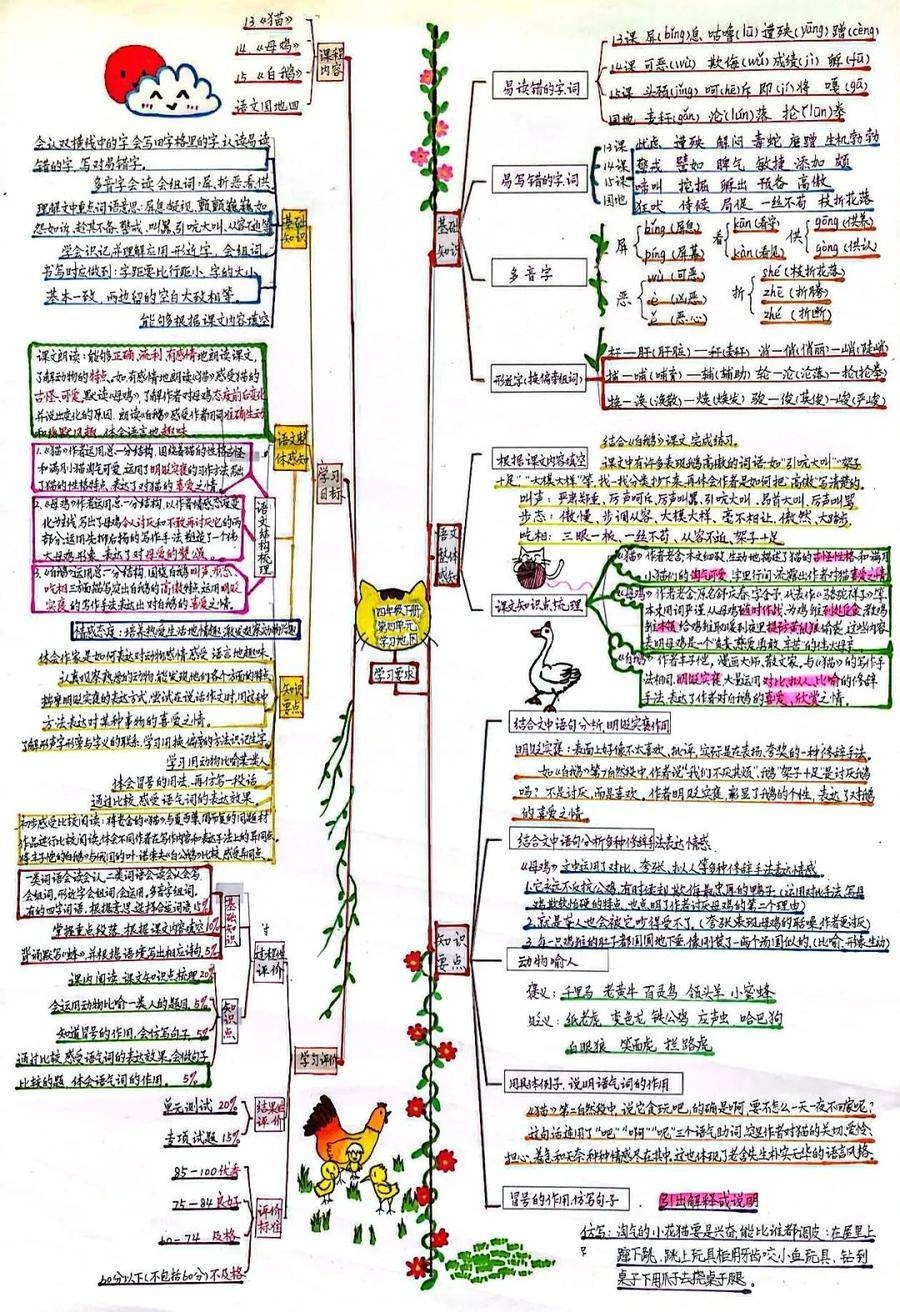 13《猫》
14《母鸡》
15《白鹅》
语文园地四
课程内容
会认双横线中的字 会写田字格里的字 认读易读
错的字、写对易错字。
多音字会读 会组词：屏、折 恶 看 供
理解文中重点词语意思：屏息凝视、
怨如诉、趁其不备、警戒、叫嚣、引吭大叫、从容不迫等
学会识记并理解应用 形近字，会组词。
书写时应做到：字距要比行距小，字的大小
基本一致，两边留的空白大致相等。
能够根据课文内容填空
基础知识
课文朗读：能够正确、流利、有感情地朗读课文，
了解动物的特点。如，有感情地朗读《猫》感受猫的
古怪、可爱，默读《母鸡》，了解作者对母鸡态度前后变化
并说出变化的原因，朗读《白鹅》感受作者用词准确生动
和幽默风趣，体会语言地趣味
语文整体感知
1.《猫》作者运用总—分结构，围绕着猫的性格古怪
和满月小猫淘气可爱，运用了明贬实褒的习作方法写出
了猫的性格特点，表达了对猫的喜爱之情。
2.《母鸡》作者运用总—分结构，以作者情感态度变
化为主线，写出了母鸡令人讨厌和不敢再讨厌它的两
部分，运用先抑后扬的写作手法，塑造了一个伟
大母鸡形象，表达了对母爱的赞颂。
3.《白鹅》运用总—分结构，围绕白鹅叫声、步态、
吃相三方面描写突出白鹅的高傲神态，运用明贬
实褒的写作手法表达出对白鹅的喜爱之情。
语文结构梳理
情感态度：培养热爱生活地情趣，激发观察动物兴趣
学习目标
体会作家是如何表达对动物感情，感受 语言地趣味
认真观察我养的动物，能发现他们各个方面的特点
抽掌明贬实褒的表达方式，尝试在说话作文时，用这种
方法表达对某种事物的喜爱之情。
了解形声字形旁与字义的联系，学习用换偏旁的方法识记生字
学习用动物比喻某类人
体会冒号的用法，再仿写一段话
通过比较 感受 语气词的表达效果
初步感受比较阅读：将老舍的《猫》与夏丏尊、周而复的同题材
作品进行比较阅读，体会不同作者在写作内容和表达手法上的异同点，
将丰子恺的《白鹅》与俄国的叶·诺索夫《白公鹅》比较，感受异同点。
知识要点
一类词语会读会认，二类词语会读会认会写，
会组词，形近字会组词，会运用，多音字组词，
有的四字词语，根据意思选择合适词语15%
掌握重点段落，根据课文内容填空10%
背诵默写《蜂》并根据语境写出相应诗句5%
基础知识
课内阅读 课文知识点梳理20%
会运用动物比喻一类人的题目，5%
知道冒号的作用，会仿写句子，5%
通过比较 感受 语气词的表达效果，会做句子
比较的题，体会语气词的作用。 5%
知识点
过程性评价
学习评价
单元测试 20%
专项试题 15%
结果性评价
85-100优秀
75-84良好
60-74 及格
60分以下(不包括60分)不及格
评价标准
四年级下册
第四单元
学习地图
学习要求
基础知识
易读错的字词
13课 屏(bǐng)息 咕噜(lū) 遭殃(yāng) 蹭(cèng)
14课 可恶(wù) 欺侮(wǔ) 成绩(jì) 孵(fū)
15课 头颈(jǐng) 呵(hē)斥 即(jí)将 嘎(gā)
园地 麦秆(gǎn) 沦(lún)落 抡(lūn)拳
易写错的字词
13课 忧虑 遭殃 解闷 毒蛇 磨蹭 生机勃勃
14课 警戒 譬如 脾气 敏捷 添加 颇
15课 啼叫 挖掘 孵出 预备 高傲
园地 狂吠 侍候 局促 一丝不苟 枝折花落
多音字
屏 bǐng(屏息) píng(屏幕)
看 kān(看守) kàn(看见)
供 gōng(供养) gòng(供认)
恶 wù(可恶) è(凶恶) ě(恶心)
折 shé(枝折花落) zhē(折腾) zhé(折断)
形近字(换偏旁组词)
杆—肝(肝脏)—秆(麦秆) 消—俏(俏丽)—峭(陡峭)
捕—哺(哺育)—辅(辅助) 轮—沦(沦落)—抡(抡拳)
换—涣(涣散)—焕(焕发) 酸—俊(英俊)—峻(严峻)
语文整体感知
根据课文内容填空
结合《白鹅》课文 完成练习。
课文中有许多表现鹅高傲的词语，如"引吭大叫""架子
十足""大模大样"等，找一找，分类抄下来，再体会作者是如何把"高傲"写清楚的。
叫声：严肃郑重、厉声呵斥、厉声叫嚣、引吭大叫、昂首大叫、厉声叫骂
步态：傲慢、步调从容、大模大样、毫不相让、傲然、大踏步
吃相：三眼一板、一丝不苟、从容不迫、架子十足
课文知识点梳理
《猫》作者老舍，本文细致、生动地描述了猫的古怪性格和满月
小猫们的淘气可爱，字里行间，流露出作者对猫喜爱之情
《母鸡》作者老舍，原名舒庆春，字舍予，代表作《骆驼祥子》等，
本文用词严谨，从母鸡随时作战，为鸡雏到处觅食，教鸡
表明母鸡是一个负责、慈爱、勇敢、辛苦的伟大母亲
《白鹅》作者丰子恺，漫画大师、散文家，与《猫》的写作手
法相同，明贬实褒，大量运用对比、拟人、比喻的修辞
手法，表达了作者对白鹅的喜爱、欣赏之情。
知识要点
结合文中语句分析，明贬实褒作用
明贬实褒：表面上好像不太喜欢、批评，实际是在表扬、夸奖的一种修辞手法。
如《白鹅》第7自然段中，作者说"我们不厌其烦"，鹅"架子十足"是讨厌鹅
吗？不是讨厌，而是喜欢，作者明贬实褒，彰显了鹅的个性，表达了对鹅
的喜爱之情。
结合文中语句分析多种修辞手法表达情感
《母鸡》文中运用了对比、夸张、拟人等多种修辞手法表达情感
1.它永远不反抗公鸡，有时候却欺侮最忠厚的鸭子（运用对比手法，写母
鸡欺软怕硬的特点，也点明了作者讨厌母鸡的第二个理由）
2.就是聋人也会被它吵得受不了。（夸张表现母鸡的聒噪，作者更讨厌）
3.每一只鸡雏的肚子都圆圆地下垂，像刚装了一两个汤圆似的，（比喻，形象生动）
动物喻人
褒义：千里马 老黄牛 百灵鸟 领头羊 小蜜蜂
贬义：纸老虎 变色龙 铁公鸡 应声虫 哈巴狗
白眼狼 笑面虎 拦路虎
用具体例子，说明语气词的作用
《猫》第二自然段中，说它贪玩吧，的确是啊，要不怎么一天一夜不回家呢？
这句话连用了"吧""啊""呢"三个语气助词，突出作者对猫的关切、爱怜、
担心、着急和无奈，种种情感尽在其中，这也体现了老舍先生朴实无华的语言风格。
冒号的作用，仿写句子
引出解释或说明
仿写：淘气的小花猫要是兴奋，能比谁都调皮：在屋里上
蹿下跳，跳上玩具柜用牙齿咬小鱼玩具，钻到
桌子下用爪子去挠桌子腿。